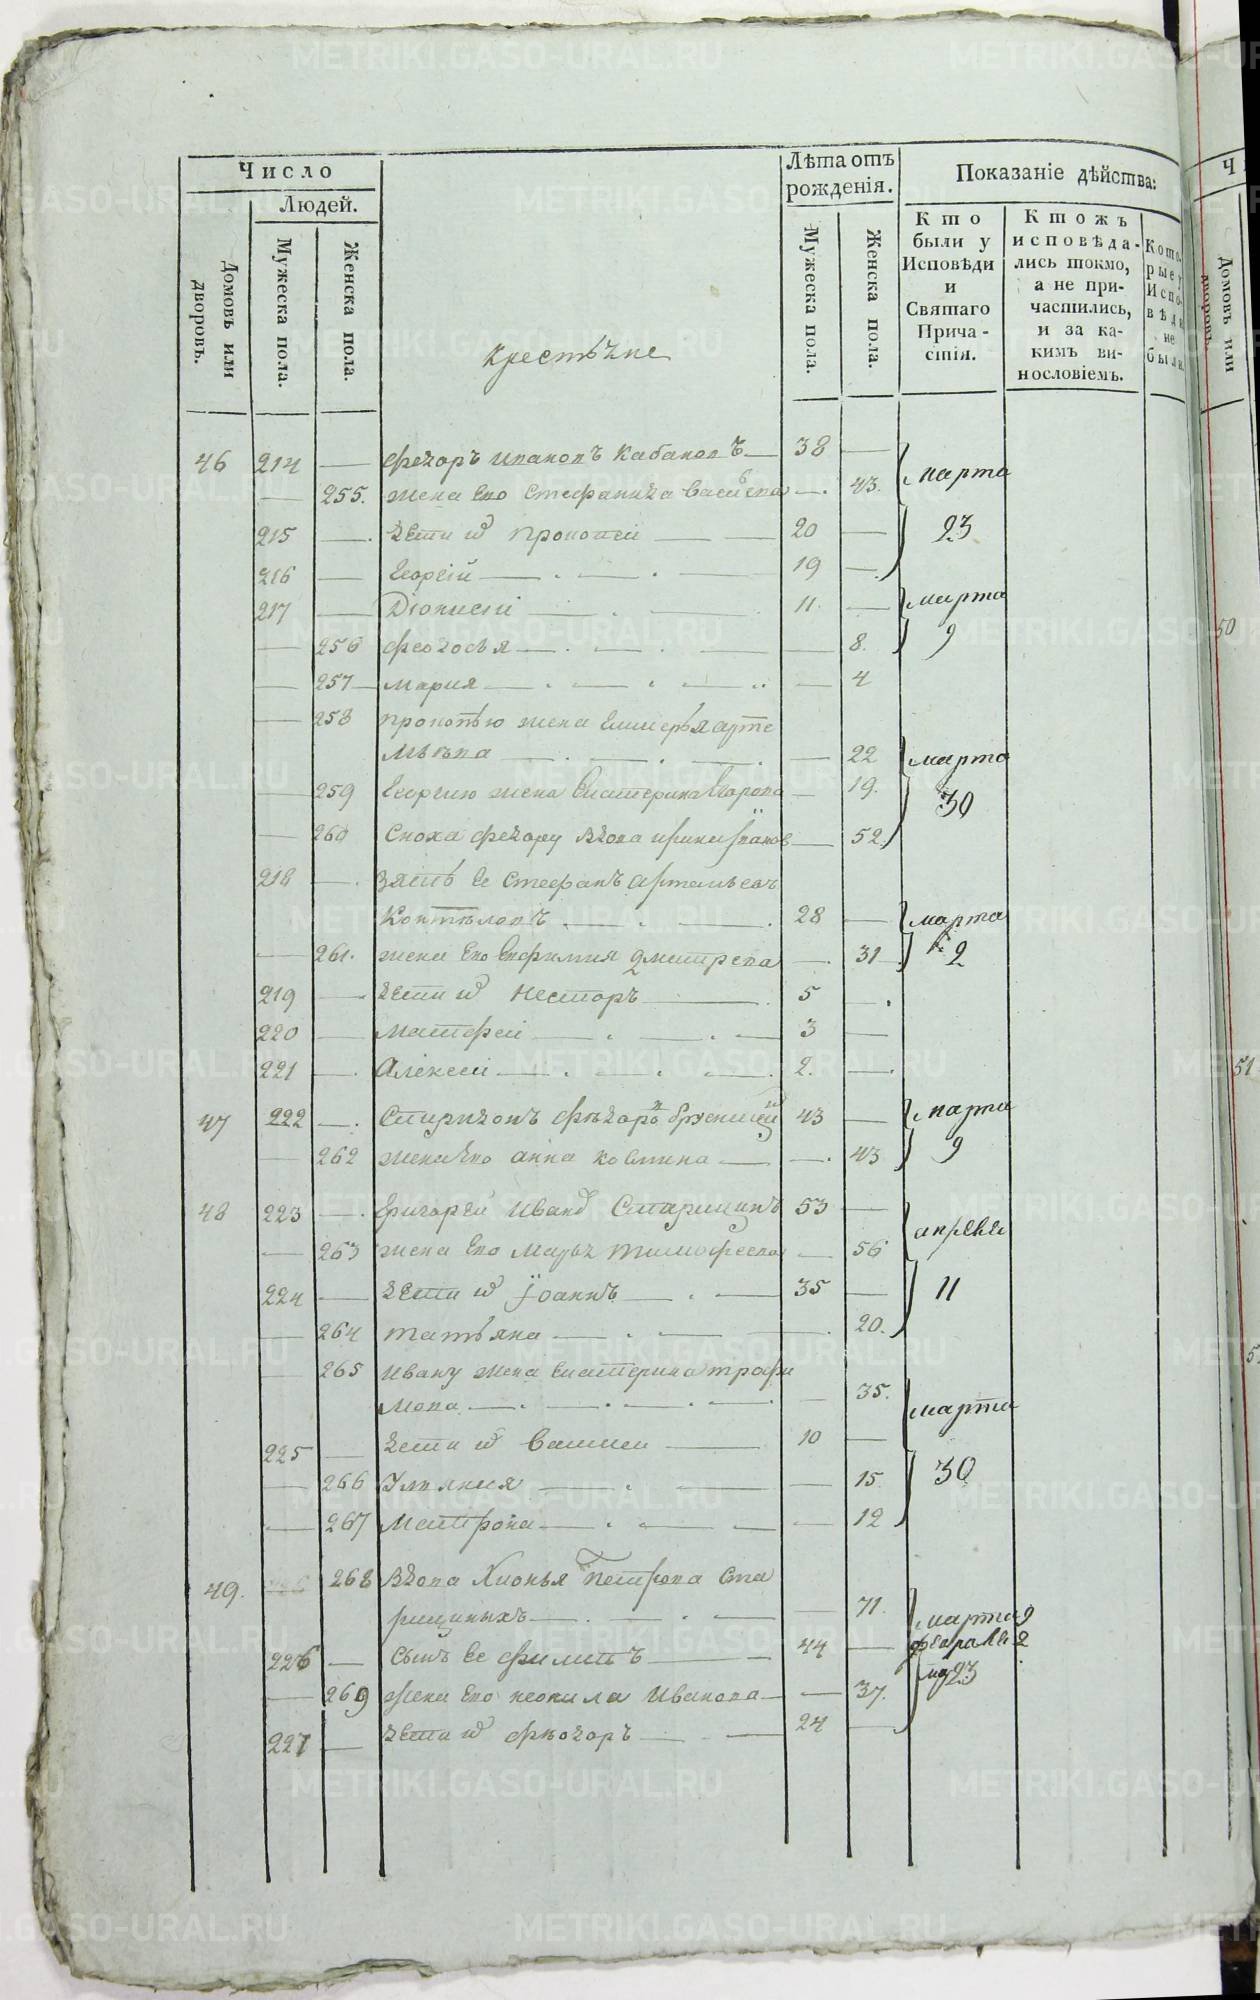 Число
Людей.
Домовъ или дворовъ.
Мужеска пола.
Женска пола.
Лѣта отъ рожденія.
Мужеска пола.
Женска пола.
Показаніе дѣйства:
Кто были у Исповѣди и Святаго Прича-стія.
Ктожъ исповѣда-лись токмо, а не при-частились, и за ка-кимъ ви-нословіемъ.
Кото-рые у Испо-вѣди не были.
крестьяне
46 214 — федоръ ивановъ Кабановъ — 38 — марта
— 255. жена его Стефанида Васильева — 43.
215 — дети ихъ Прокопей — 20 — 23
216 — Георгій — 19 —
217 — Діонисій — 11. — марта
— 256 феодосья — 8. 9
— 257 — мария — 4
— 258 прокопью жена Гликерья арте
мьева — 22 марта
— 259 Георгию жена Екатерина Егорова — 19. 30
— 260 Сноха федору вдова ирина иванов — 52.
218 — зять ее Стефанъ артемьевъ
Коптѣловъ — 28 — марта
— 261. жена его Евфимия дмитрева — 31 — 2
219 — дети ихъ Несторъ — 5 —
220 — Матфей — 3 —
221 — Алексей — 2. —
47 222 — Спиридонъ федоровъ — 43 — марта
— 262 жена его анна козмина — 43 9
48 223 — Григорей Иванов Старицынъ 53 —
апреля
— 263 жена его Марья тимофеева — 56
224 — дети ихъ Іоаннъ — 35 — 11
— 264 татьяна — 20.
— 265 ивану жена Екатерина трофи
мова — 35. марта
225 — дети ихъ Василей — 10 —
— 266 Улияния — 15 30
— 267 Матрона — 12
49. 268 вдова Хионья Петрова Ста
рицыныхъ — 71. марта 9
226 — сынъ ее филипъ — 44 — февраля 2
— 269 жена его неонила Иванова — 37. ма 23
227 — дети ихъ феодоръ — 24 —
50
51
METRIKI.GASO-URAL.RU